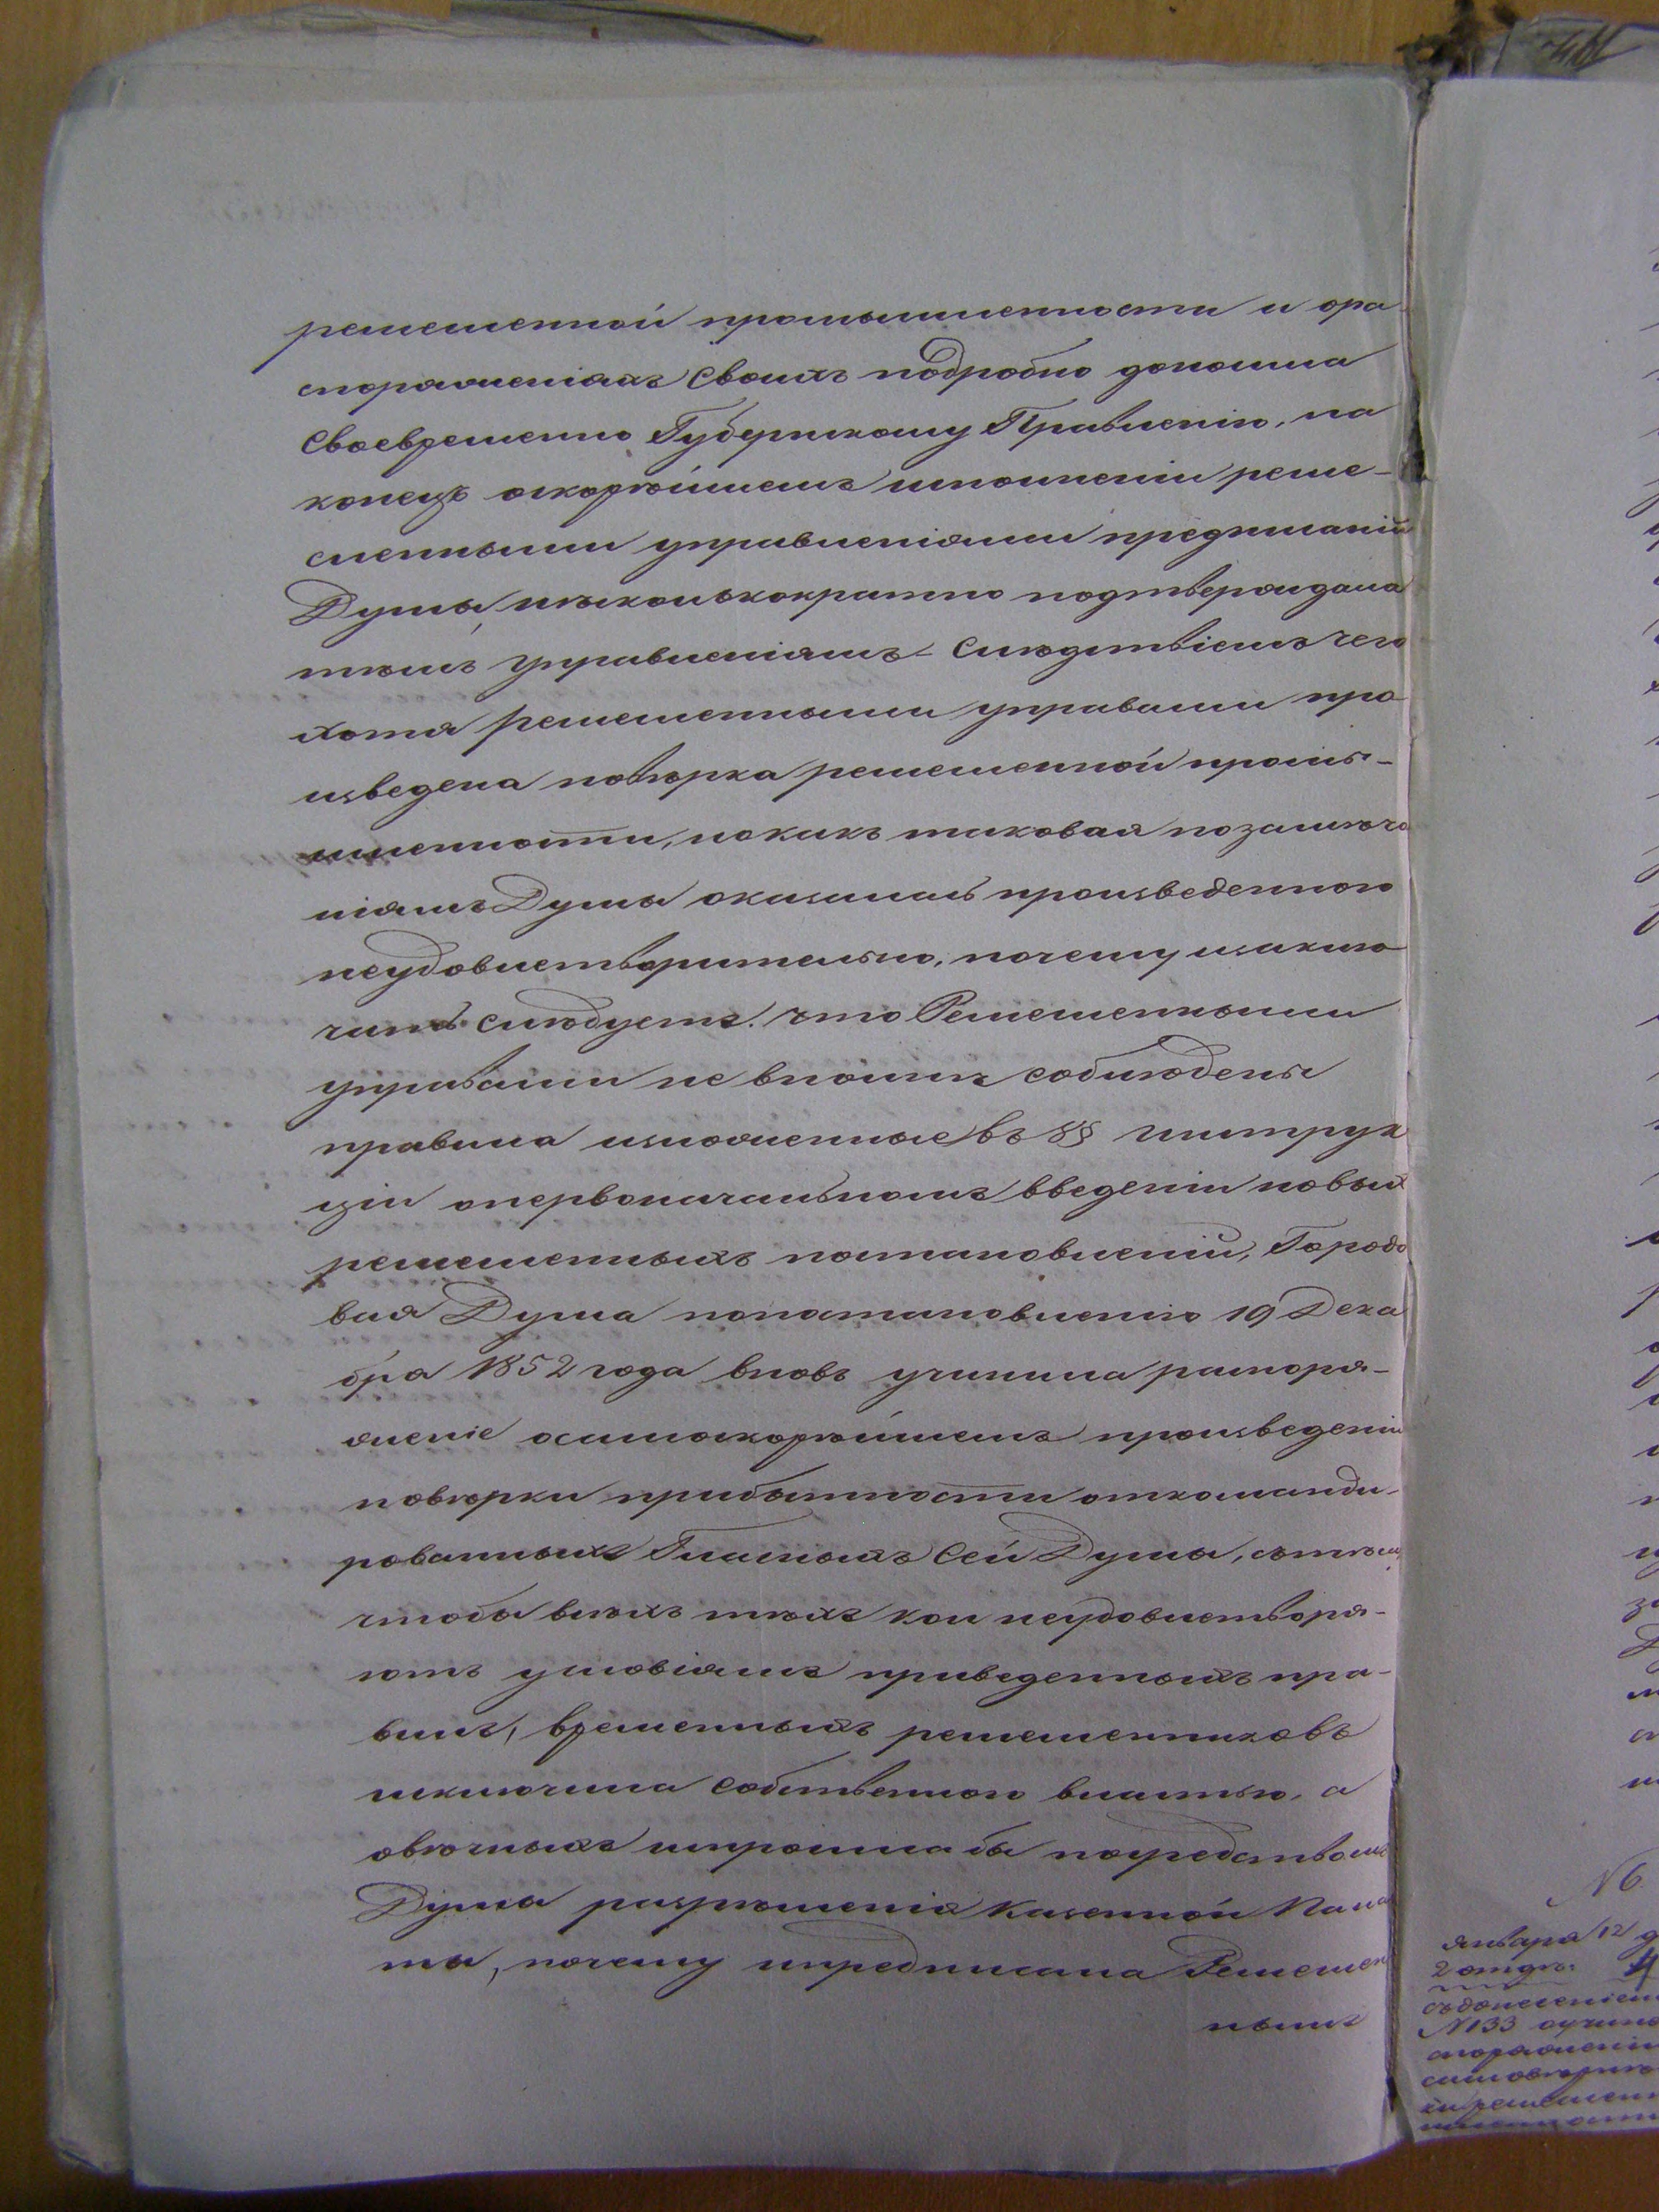 ремесленной промышленности и ора
споряженіяхъ своихъ подробно доносила
Своевременно Губернскому Правленію, на
конецъ оскорѣйшемъ исполненіи реме-
сленными управленіями предписаній
Думы, нѣсколькократно подтверждала
тѣмъ управленіямъ – Слѣдствіемъ чего
хотя ремесленными управами про
изведена повѣрка ремесленной промы-
шленности, но какъ таковая по замѣча
ніямъ Думы оказалась произведенною
неудовлетворительно, почему и заклю
чить слѣдуетъ: что Ремесленными
управами не вполнѣ соблюдены
правила изложенные въ §§ инструк
ціи опервоначальномъ введеніи новыхъ
ремесленныхъ постановленій, Городо
вая Дума по постановленію 19 Дека
бря 1852 года вновь учинила распоря-
женіе осамоскорѣйшемъ произведеніи
повѣрки прибытности откомандиро-
рованныхъ Гласныхъ сей Думы, сътѣмъ
чтобы всѣхъ тѣхъ кои неудовлетворя-
ютъ условіямъ приведенныхъ пра-
вилъ, временныхъ ремесленниковъ
исключила собственною властью, а
овѣчныхъ испросила бы посредствомъ
Думы разрѣшенія Казенной Пала
ты, почему и предписала Ремеслен
нымъ
N 6
Января 12 д
2 отдѣ: 4
съ донесеніем
N 133 о учине
споряженіи
ки ремеслен